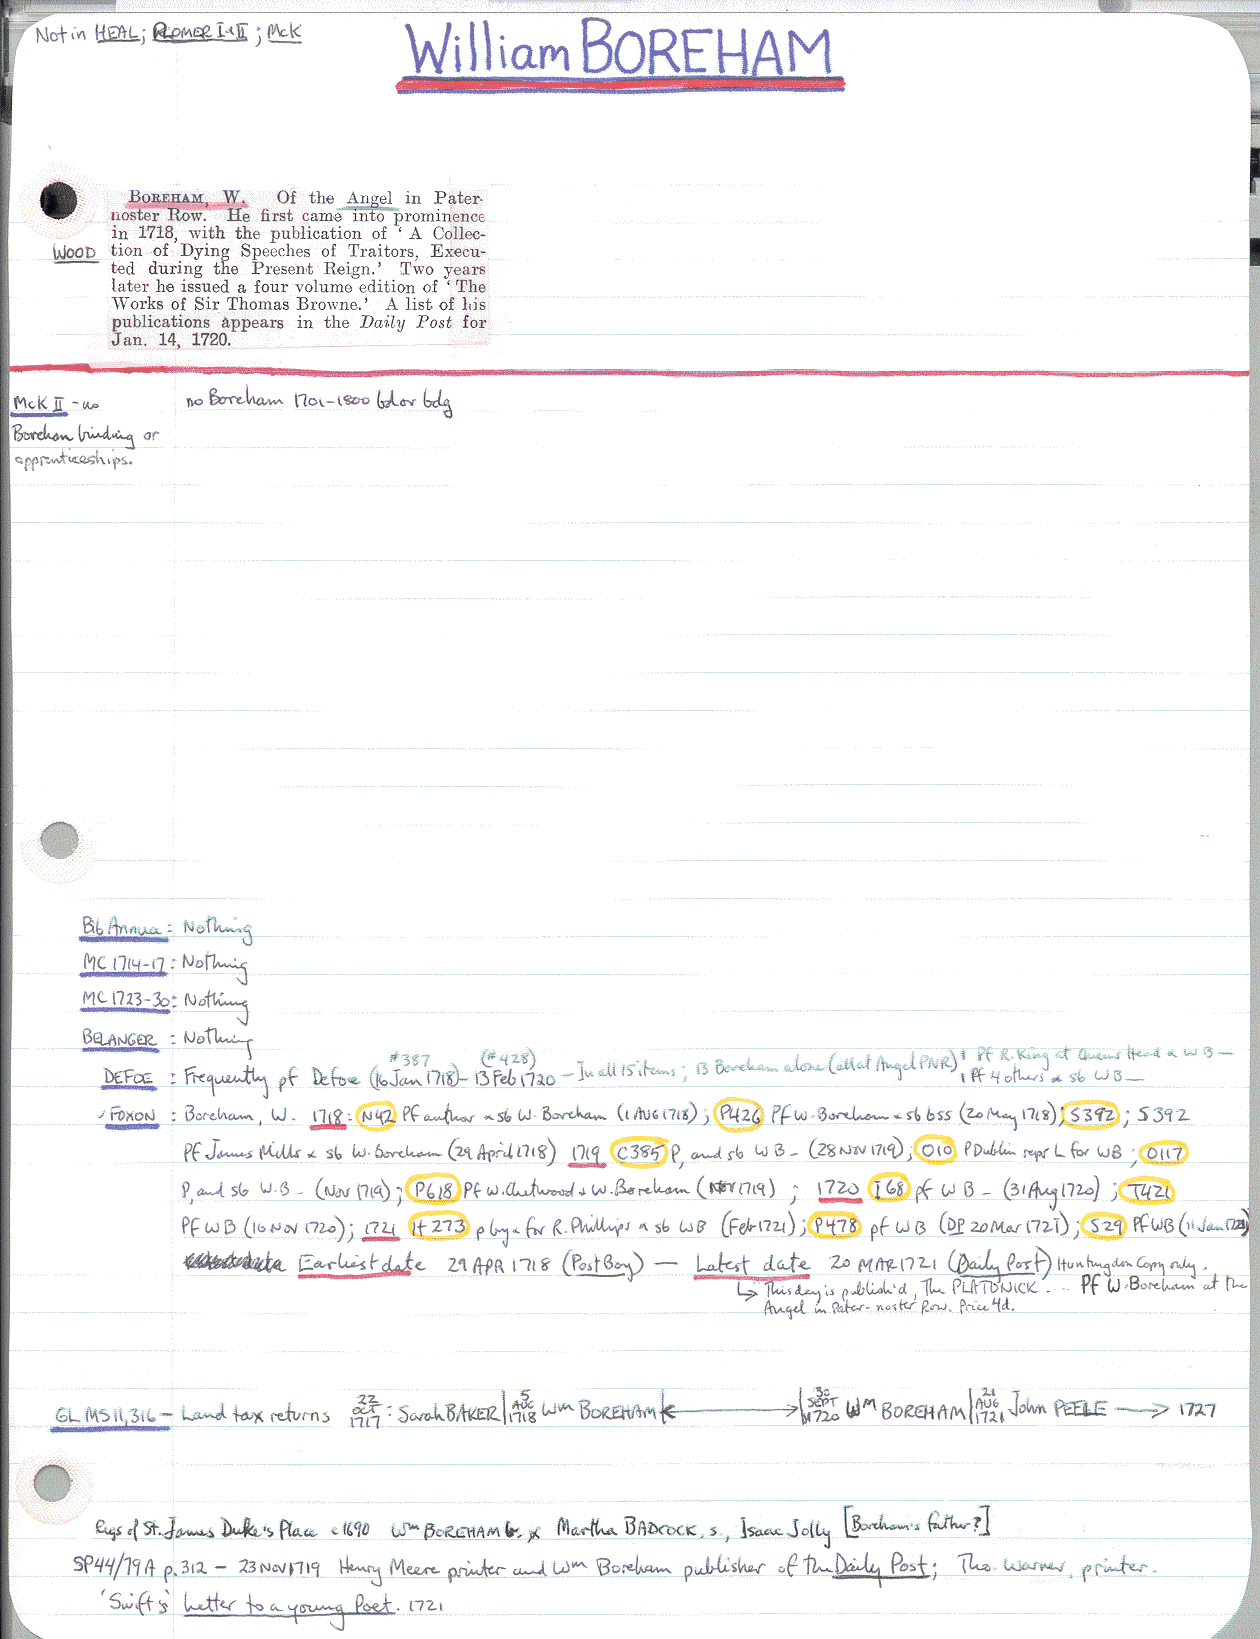 Not in HEAL; PLOMER I & II; McK
William BOREHAM
BOREHAM, W. Of the Angel in Pater-
noster Row. He first came into prominence
in 1718, with the publication of ' A Collec-
WOOD
tion of Dying Speeches of Traitors, Execu-
ted during the Present Reign.' Two years
later he issued a four volume edition of ' The
Works of Sir Thomas Browne.' A list of his
publications appears in the Daily Post for
Jan. 14, 1720.
McK II - no
Boreham binding or
apprenticeships.
no Boreham 1701-1800 bd or bdg
Bib Annua : Nothing
MC 1714-17 : Nothing
MC 1723-30 : Nothing
BELANGER : Nothing
#387 (#428)
DEFOE : Frequently pf Defoe (16 Jan 1718) - 13 Feb 1720 - In all 15 items; 13 Boreham alone (all at Angel PNR) 1 Pf R. King at Queens Head & WB -
1 Pf 4 others & sb WB -
✓FOXON : Boreham, W. 1718: N42 Pf author & sb W. Boreham (1 AUG 1718); P426 Pf W. Boreham & sb bss (20 May 1718); S392; S392
Pf James Mills & sb W. Boreham (29 April 1718) 1719 C385 P, and sb WB - (28 NOV 1719); O10 P Dublin repr L for WB; O117
P, and sb W.B - (Nov 1719); P618 Pf W. Chetwood & W. Boreham (Nov 1719); 1720 I68 pf WB - (31 Aug 1720); T421
Pf WB (10 NOV 1720); 1721 H273 p by & for R. Phillips & sb WB (Feb 1721); P478 pf WB (DP 20 Mar 1721); S29 Pf WB (11 Jan 1721)
Earliest date 29 APR 1718 (Post Boy) — Latest date 20 MAR 1721 (Daily Post) Huntingdon Copy only.
↳ This day is publish'd, The PLATONICK .... Pf W. Boreham at the
Angel in Pater-noster Row. Price 4d.
GL MS 11,316 - Land tax returns 22 OCT 1717 : Sarah BAKER | 5 AUG 1718 Wm BOREHAM ⟵⟶ | 30 SEPT 1720 Wm BOREHAM | 21 AUG 1721 John PEELE ⟶ 1727
Regs of St. James Duke's Place c 1690 Wm BOREHAM b. x Martha BADCOCK, s., Isaac Jolly [Boreham's father?]
SP44/79A p. 312 - 23 NOV 1719 Henry Meere printer and Wm Boreham publisher of the Daily Post; Tho. Warner, printer.
'Swift's' Letter to a young Poet. 1721